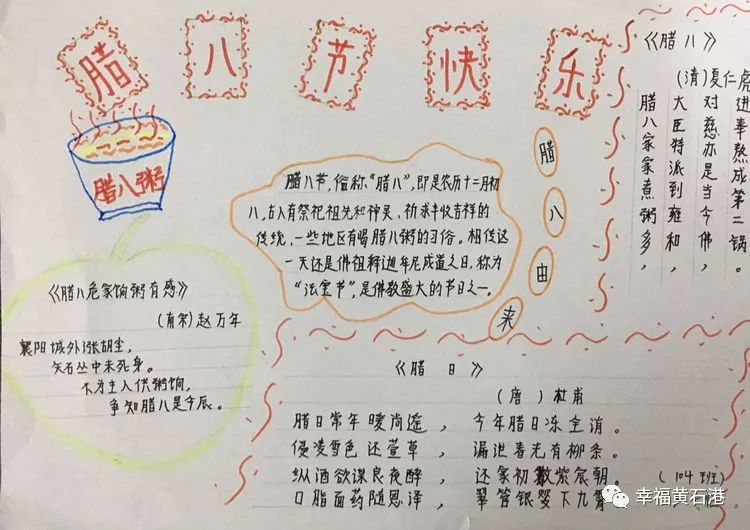 腊八节快乐
腊八粥
腊八由来
腊八节,俗称“腊八”,即是农历十二月初
八,古人有祭祀祖先和神灵、祈求丰收吉祥的
传统,一些地区有喝腊八粥的习俗。相传这
一天还是佛祖释迦牟尼成道之日,称为
“法宝节”,是佛教盛大的节日之一。
《腊八》
(清)夏仁虎
腊八家家煮粥多,
大臣特派到雍和,
对慈亦是当今佛,
进奉熬成第二锅。
《腊八危家饷粥有感》
(南宋)赵万年
襄阳城外涨胡尘,
矢石丛中未死身。
不为主人供粥饷,
争知腊八是今辰。
《腊日》
(唐)杜甫
腊日常年暖尚遥,今年腊日冻全消。
侵凌雪色还萱草,漏泄春光有柳条。
纵酒欲谋良夜醉,还家初散紫宸朝。
口脂面药随恩泽,翠管银罂下九
(104班)
幸福黄石港